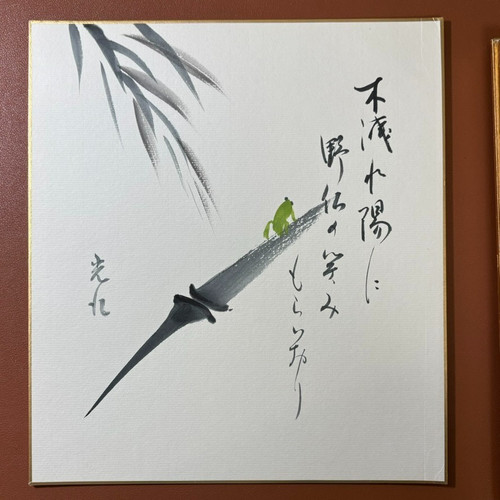 木洩れ陽に
野仏の笑み
もらいおり